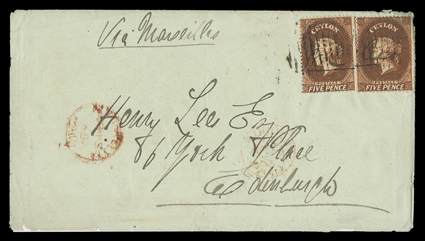 Via Marseilles
CEYLON CEYLON
POSTAGE POSTAGE
FIVE PENCE FIVE PENCE
Henry Lees Esq
86 York Place
Edinburgh